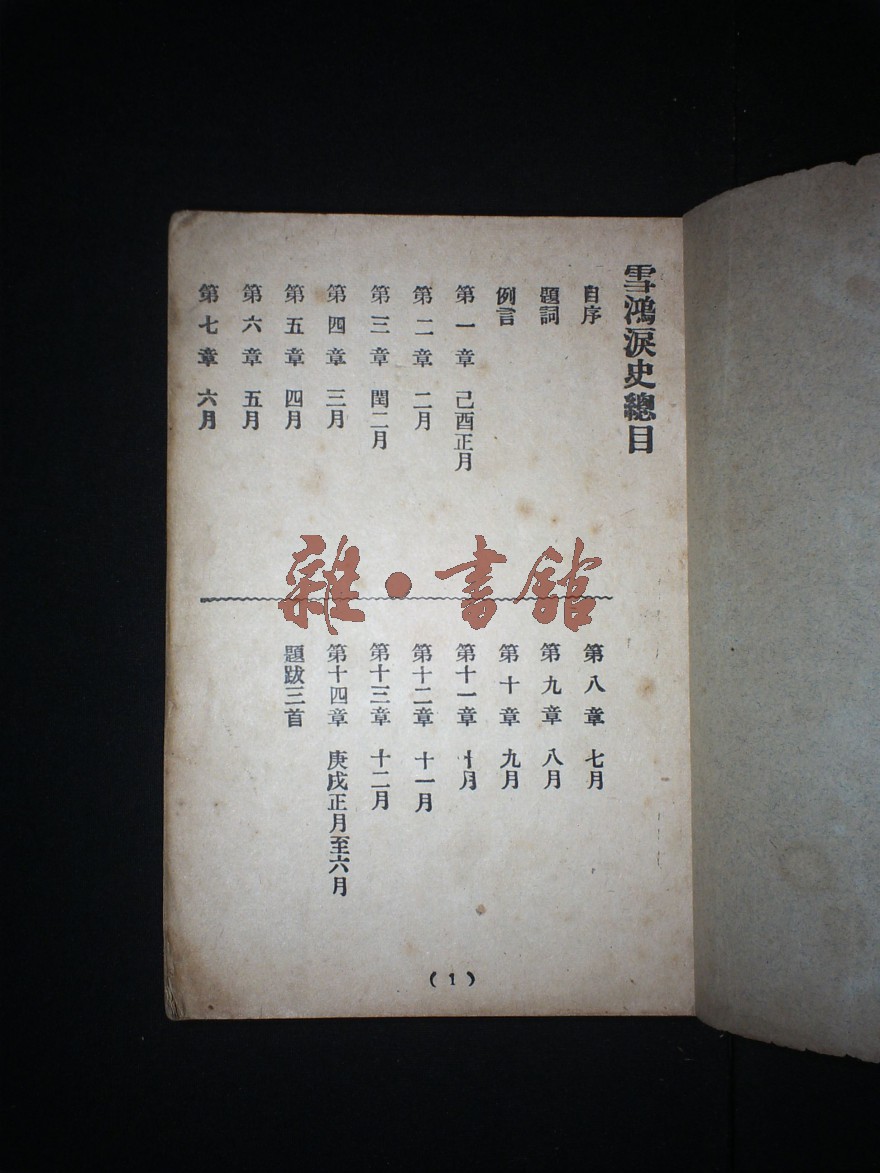 雪鴻淚史總目
自序
題詞
例言
第一章 己酉正月
第二章 二月
第三章 閏二月
第四章 三月
第五章 四月
第六章 五月
第七章 六月
第八章 七月
第九章 八月
第十章 九月
第十一章 十月
第十二章 十一月
第十三章 十二月
第十四章 庚戌正月至六月
題跋三首
(1)
雜·書館